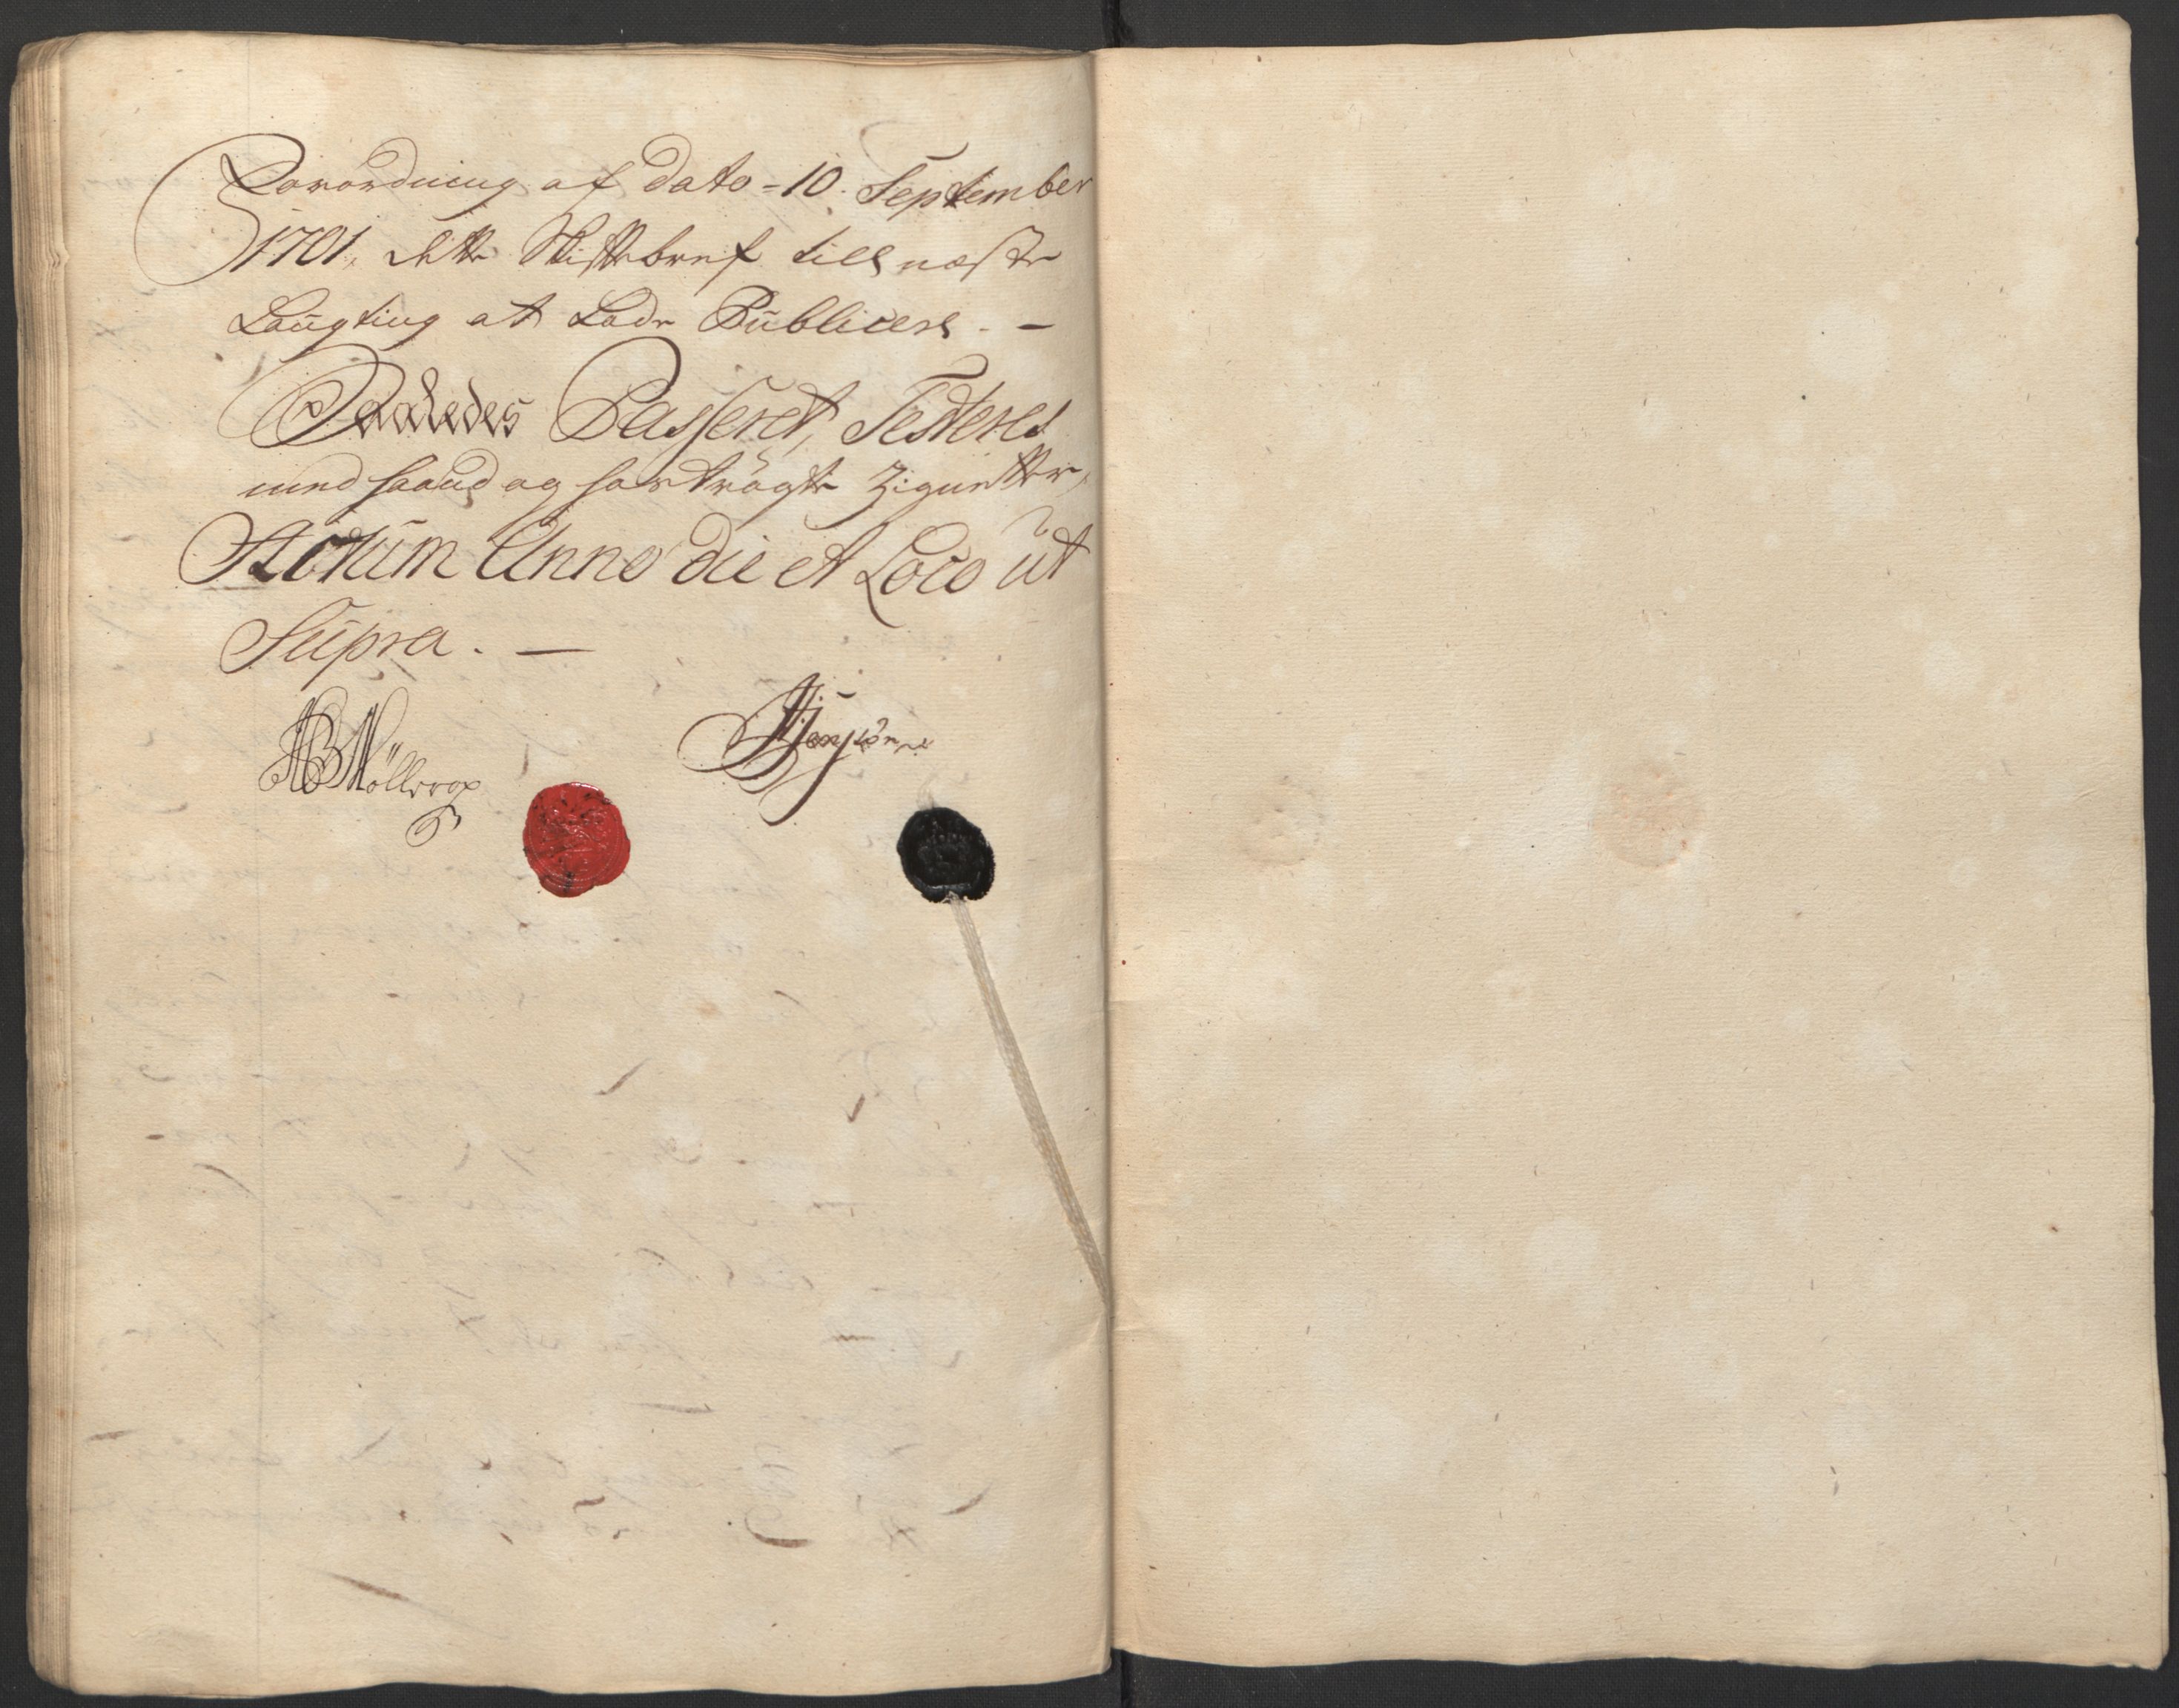 Forordning af dato = 10. September
1701, dette Skiftebref till næste
Laugting at Lade Publicere. —
Saaledes Passeret, Testeres
med haand og hoströgte Zigneter,
Actum Anno die et Loco ut
Supra. —